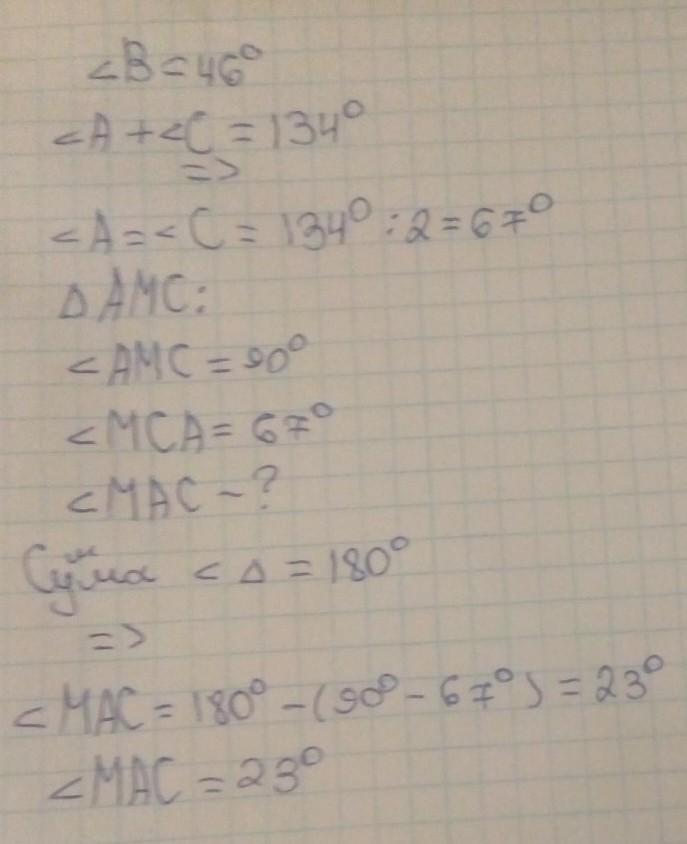 <B=46°
<A+<C=134°
=>
<A=<C=134°:2=67°
Δ AMC:
<AMC=90°
<MCA=67°
<MAC-?
Сума <Δ=180°
=>
<MAC=180°-(90°-67°)=23°
<MAC=23°